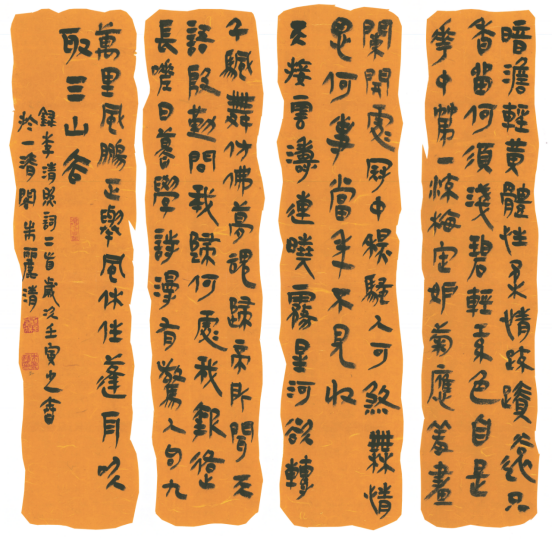 暗澹輕黃體性柔情疎蹟遠只
香留何須淺碧輕色自是
花中第一流梅定妒菊應羞畫
闌開處冠中秋騷人可煞無情
思何事當年不見收
天接雲濤連曉霧星河欲轉
千颿舞仿佛夢魂歸帝所聞天
語殷勤問我歸何處我報
長嗟日暮學詩漫有驚人句九
萬里風鵬正舉風休住蓬舟吹
取三山去
錄李清照詞二首歲次壬寅之春
於一清閣 朱麗清